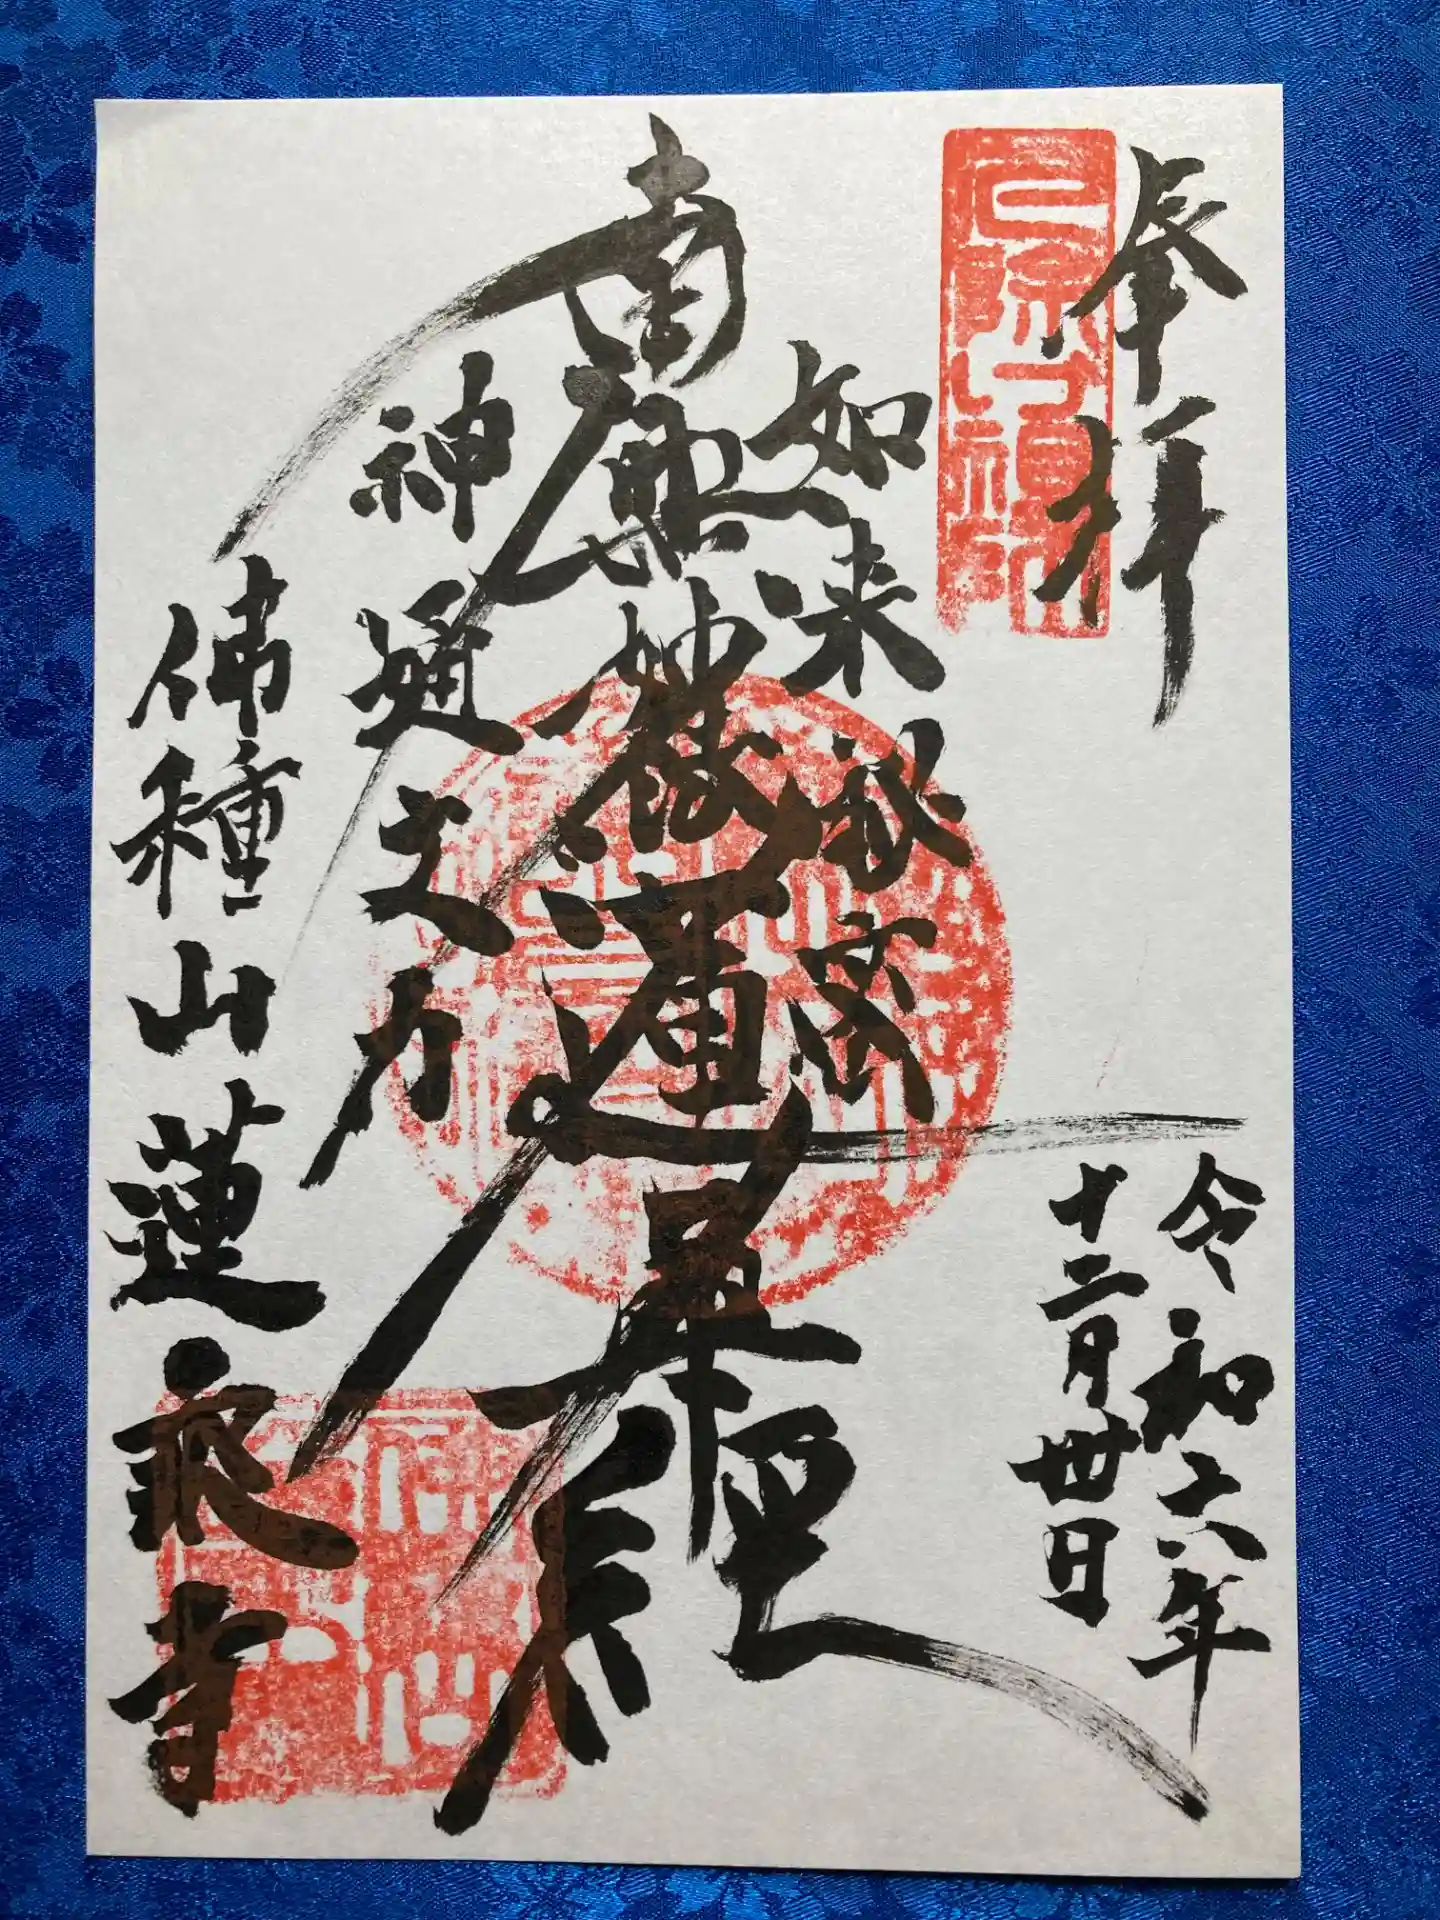 奉拝
令和六年
十二月丗日
如来秘密
南無妙法蓮華経
神通之力
佛種山蓮永寺